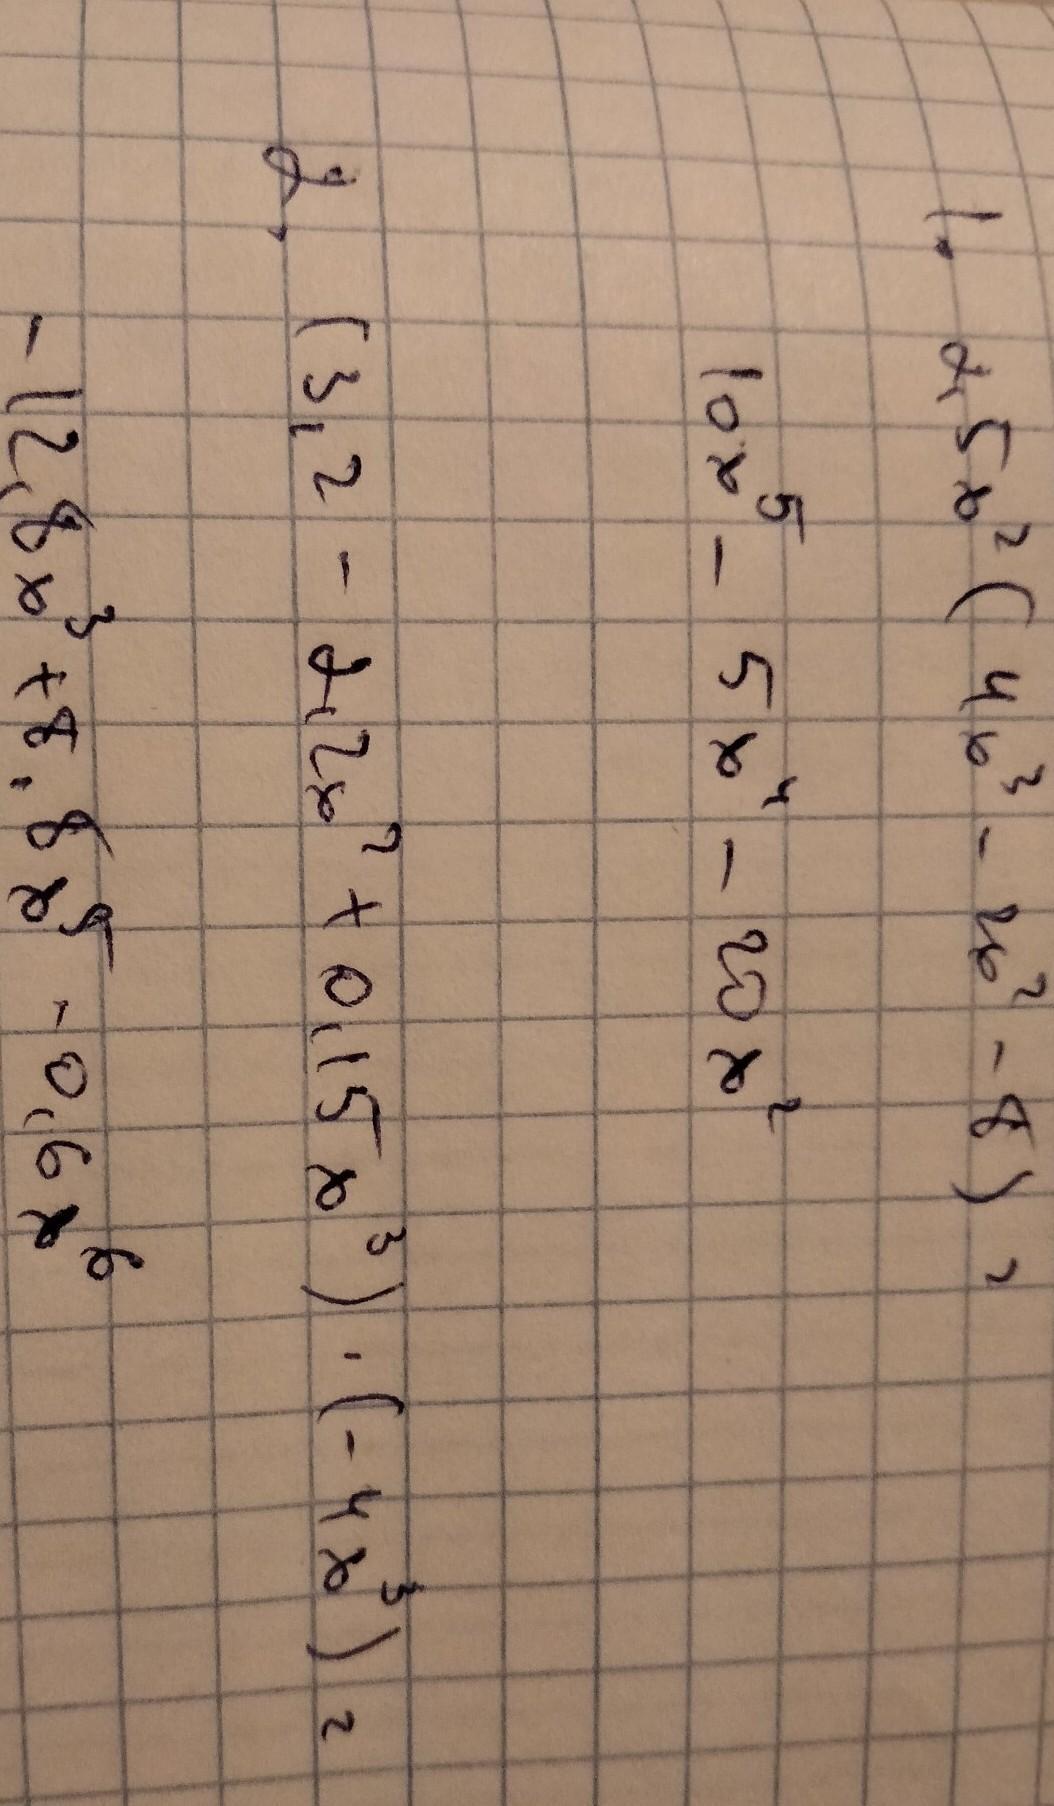 1. 2,5x² (4x³ - 2x² - 8) =
10x⁵ - 5x⁴ - 20x²
2. (3,2 - 2,2x² + 0,15x³) · (-4x³) =
-12,8x³ + 8.8x⁵ - 0,6x⁶